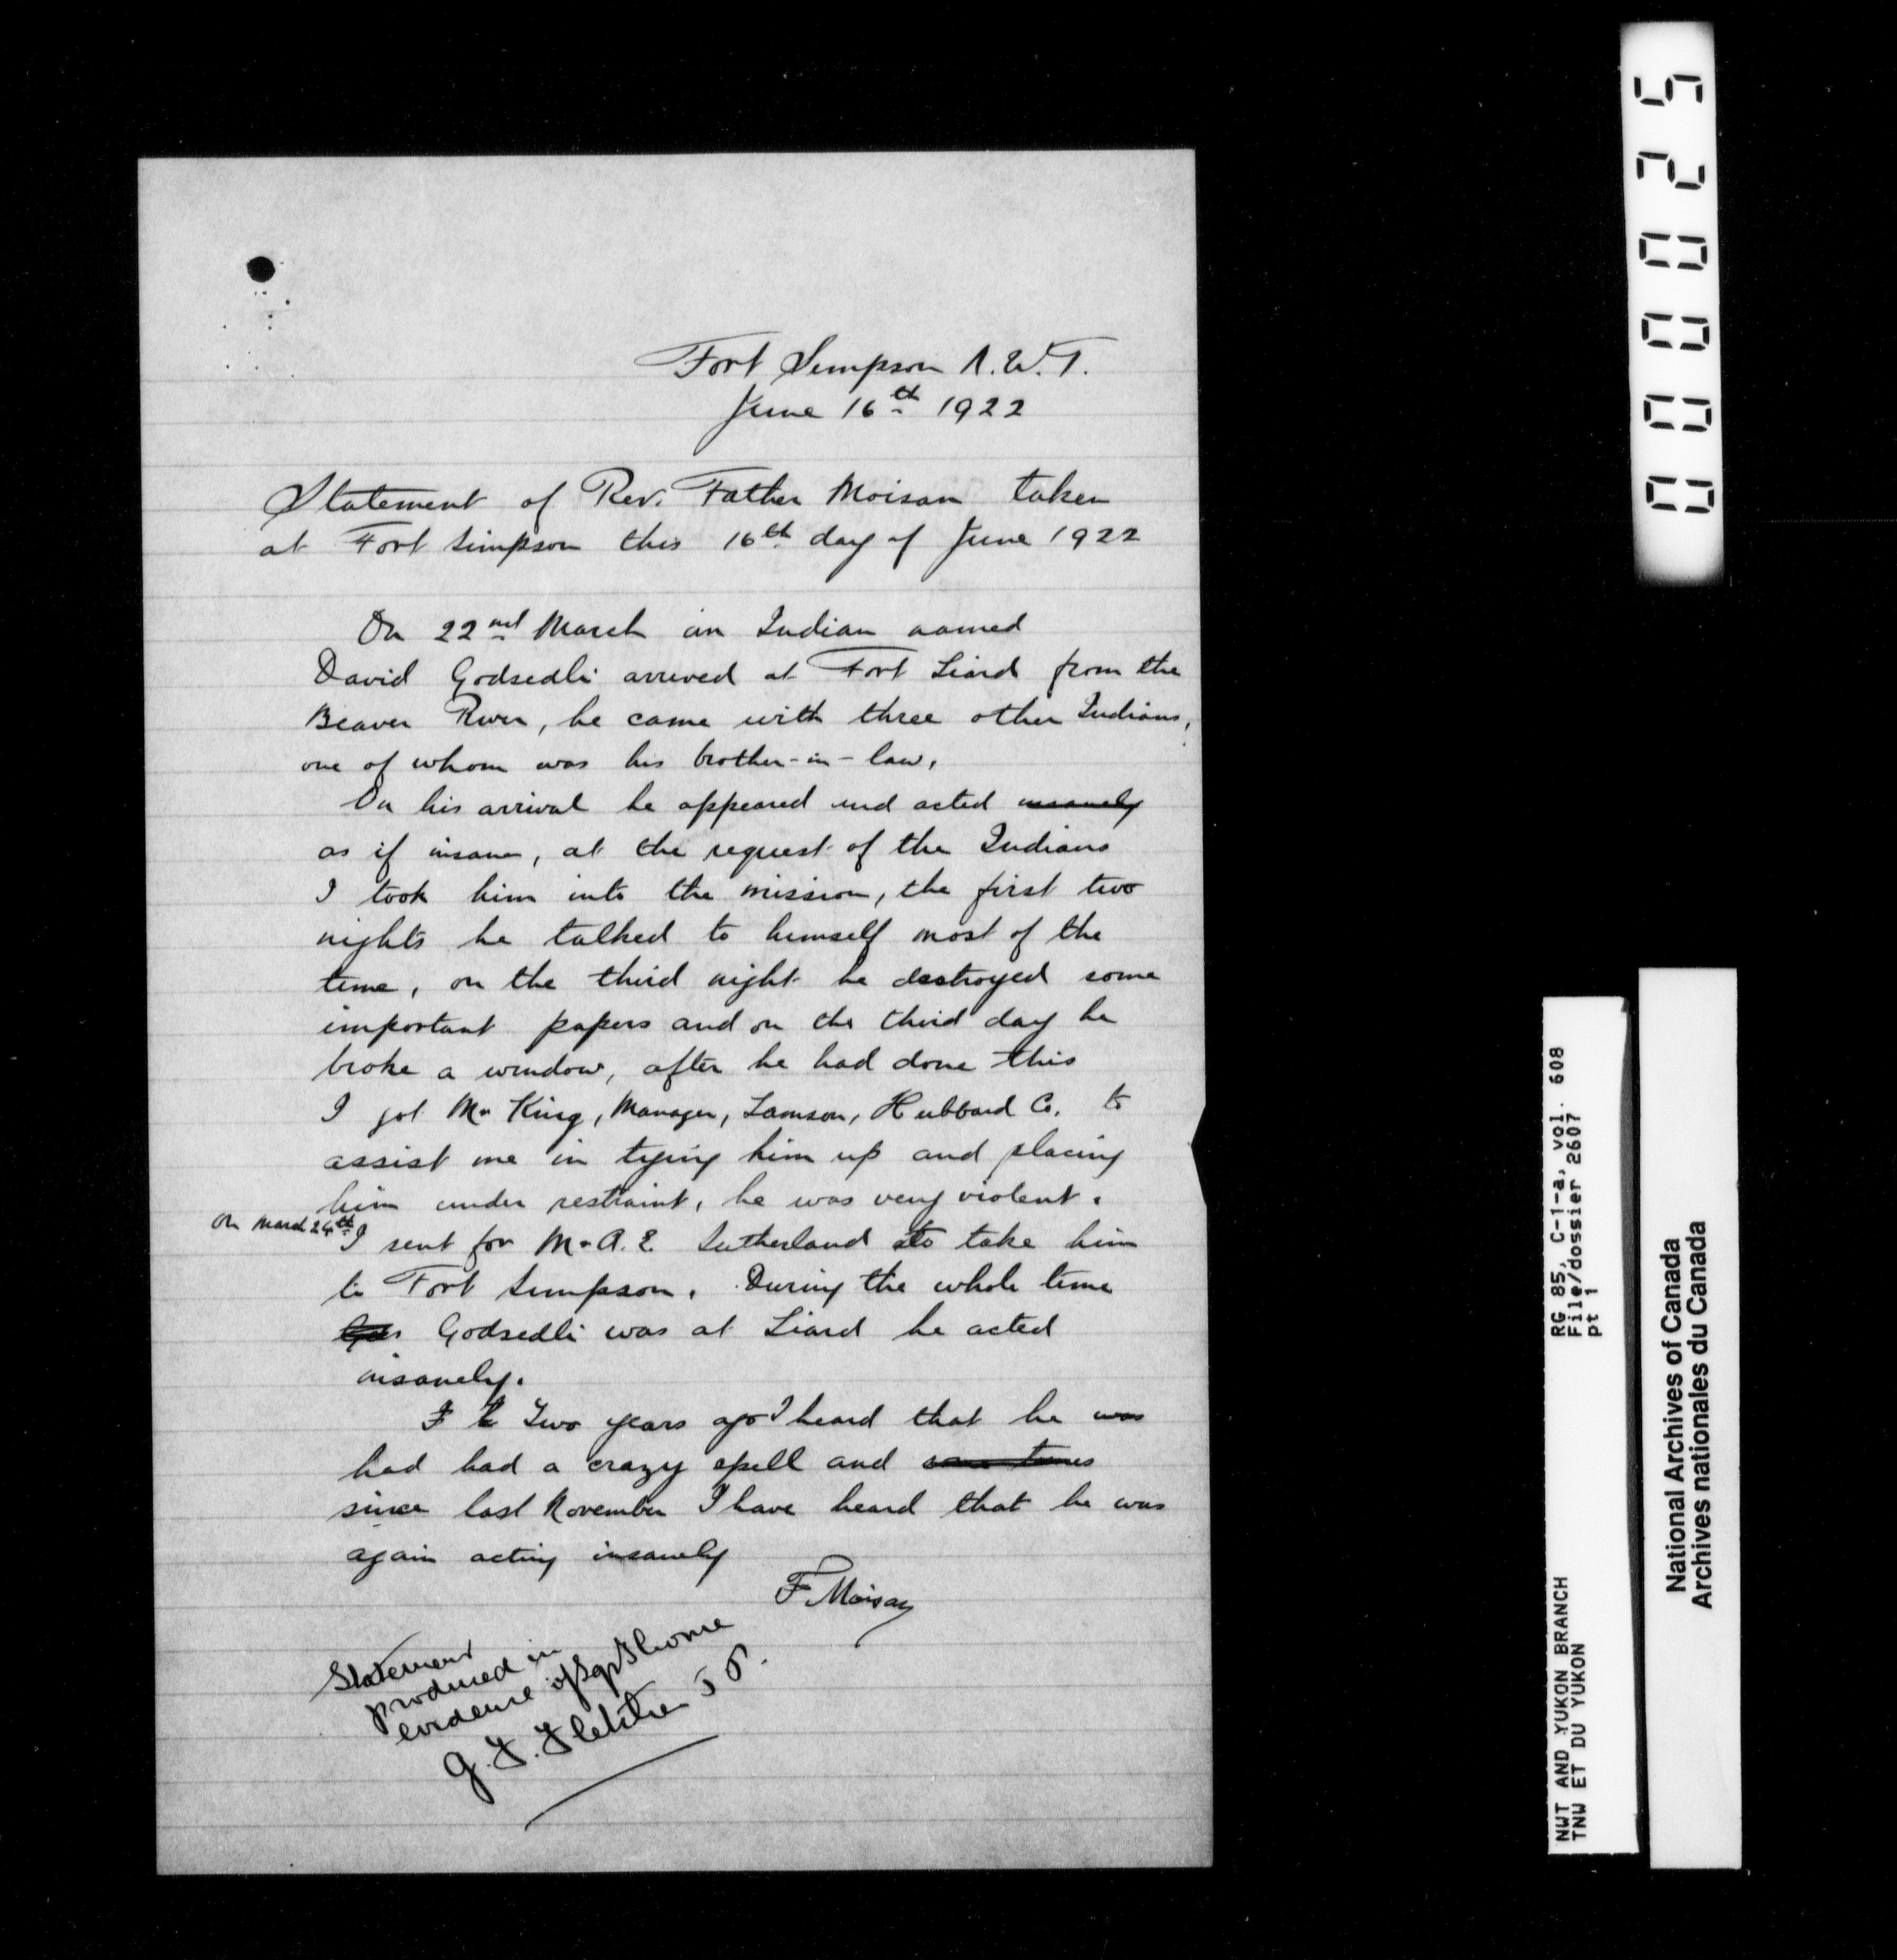 Fort Simpson N.W.T.
June 16th 1922
Statement of Rev. Father Moisan taken
at Fort Simpson this 16th day of June 1922
On 22nd March an Indian named
David Godsedli arrived at Fort Liard from the
Beaver River, he came with three other Indians,
one of whom was his brother-in-law,
On his arrival he appeared and acted insanely
as if insane, at the request of the Indians
I took him into the mission, the first two
nights he talked to himself most of the
time, on the third night he destroyed some
important papers and on the third day he
broke a window, after he had done this
I got Mr King, Manager, Lamson, Hubbard Co. to
assist me in tying him up and placing
him under restraint, he was very violent.
On March 24th I sent for Mr A. E. Sutherland to take him
to Fort Simpson. During the whole time
Godsedli was at Liard he acted
insanely.
Two years ago I heard that he was
had had a crazy spell and sometimes
since last November I have heard that he was
again acting insanely
F. Moisan
Statement
produced in
evidence of Sgt Thorne
G. F. Fletcher J P.
000025
RG 85, C-1-a, vol. 608
File/dossier 2607
pt 1
NWT AND YUKON BRANCH
TNW ET DU YUKON
National Archives of Canada
Archives nationales du Canada